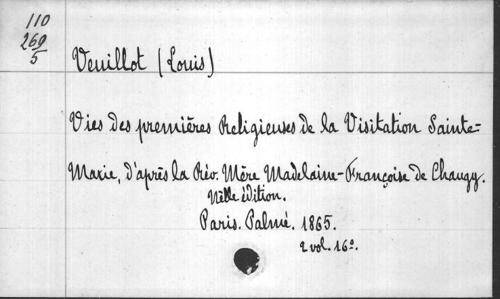 110
269
5
Veuillot (Louis)
Vies des premières Religieuses de la Visitation Sainte-
Marie, d'après la Rév. Mère Madelaine-Françoise de Chaugy.
Nelle édition.
Paris. Palmé. 1865.
2 vol. 16º.